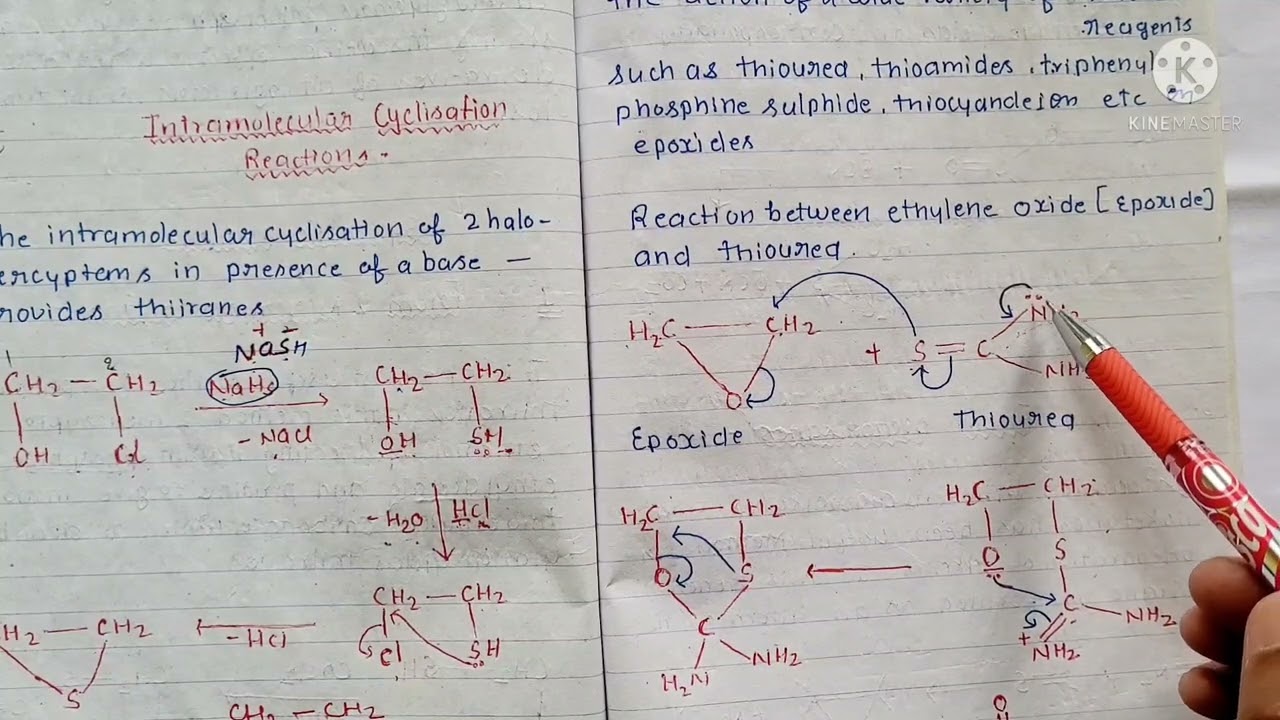 Intramolecular Cyclisation
Reactions.
he intramolecular cyclisation of 2 halo-
ercyptems in presence of a base —
rovides thiiranes
+ -
NaSH
1 2
CH2 — CH2
NaHS
- NaCl
OH Cl
CH2 — CH2
OH SH
- H2O HCl
CH2 — CH2
Cl SH
- HCl
H2 — CH2
S
CH2 — CH2
reagents
such as thiourea, thioamides, triphenyl
phosphine sulphide, thiocyandeion etc on
epoxides
KINEMASTER
Reaction between ethylene oxide [Epoxide]
and thiourea.
H2C — CH2
O
+ S = C
NH2
Epoxide
Thiourea
H2C — CH2
O S
C
H2N NH2
H2C — CH2
O S
C NH2
+
NH2
O